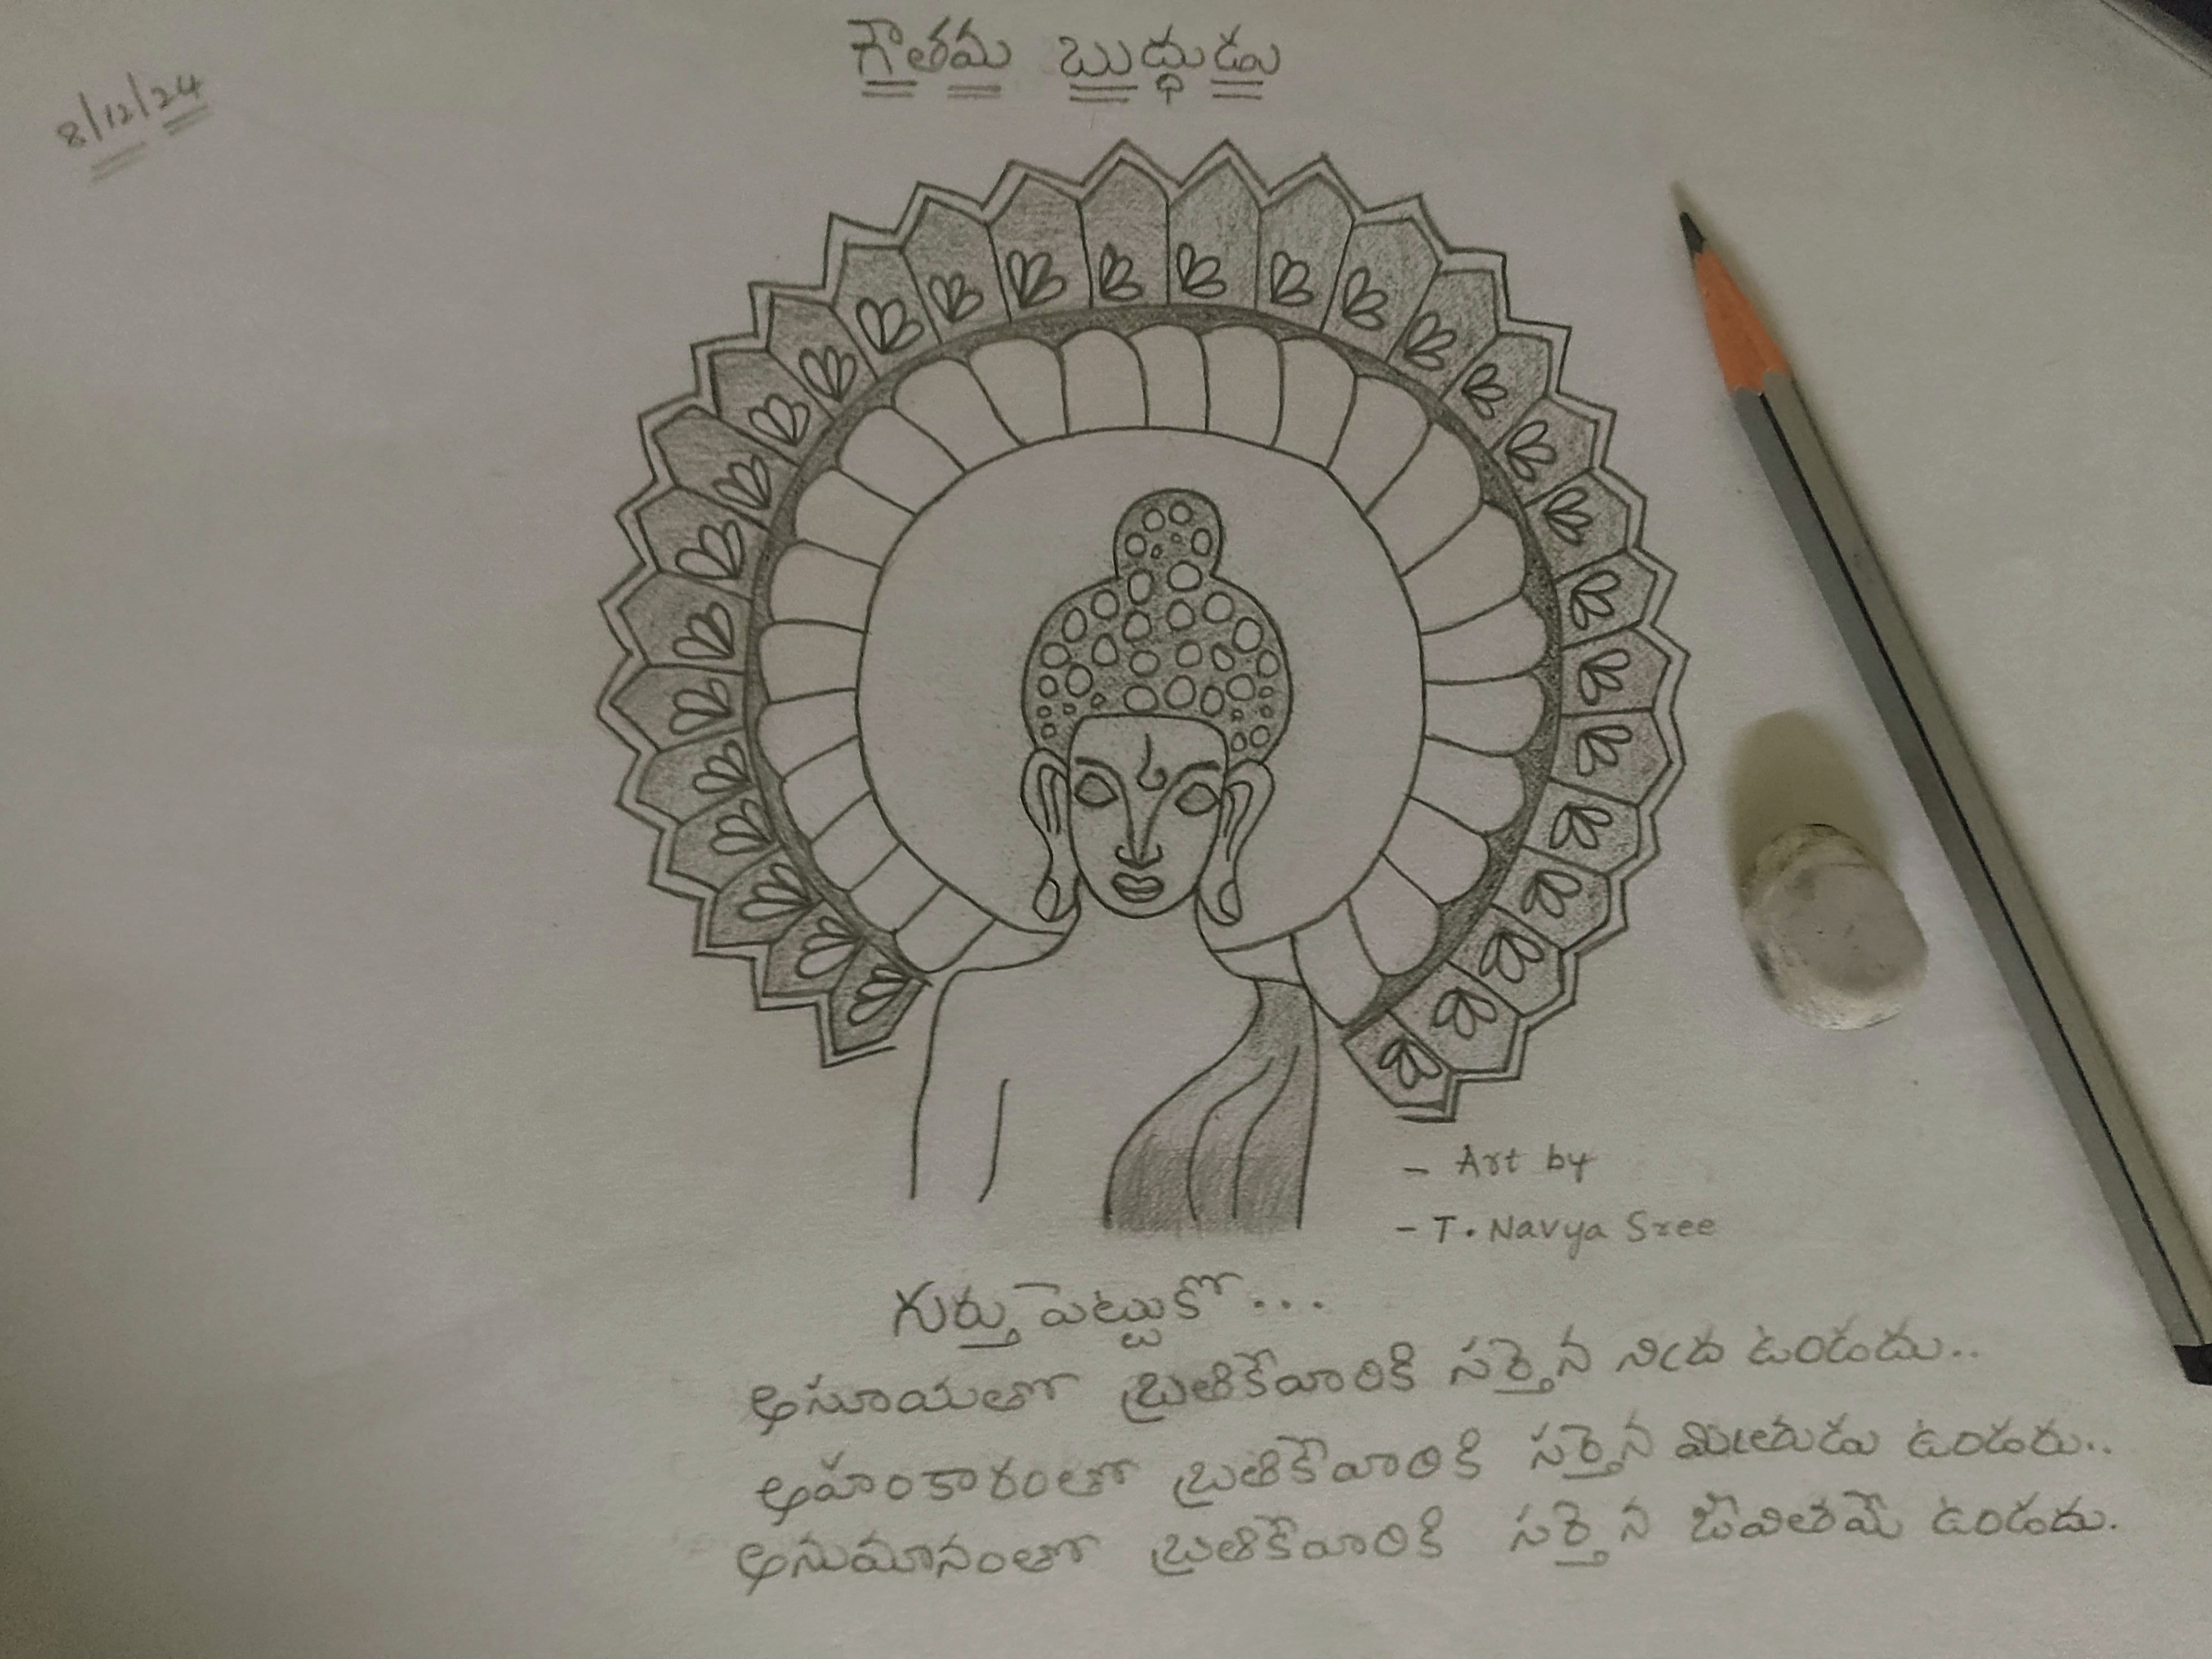 గౌతమ బుద్ధుడు
8/12/24
- Art by
- T. Navya Sree
గుర్తు పెట్టుకో...
అసూయతో బ్రతికేవారికి సరైన నిద్ర ఉండదు..
అహంకారంతో బ్రతికేవారికి సరైన మిత్రుడు ఉండరు..
అనుమానంతో బ్రతికేవారికి సరైన జీవితమే ఉండదు.